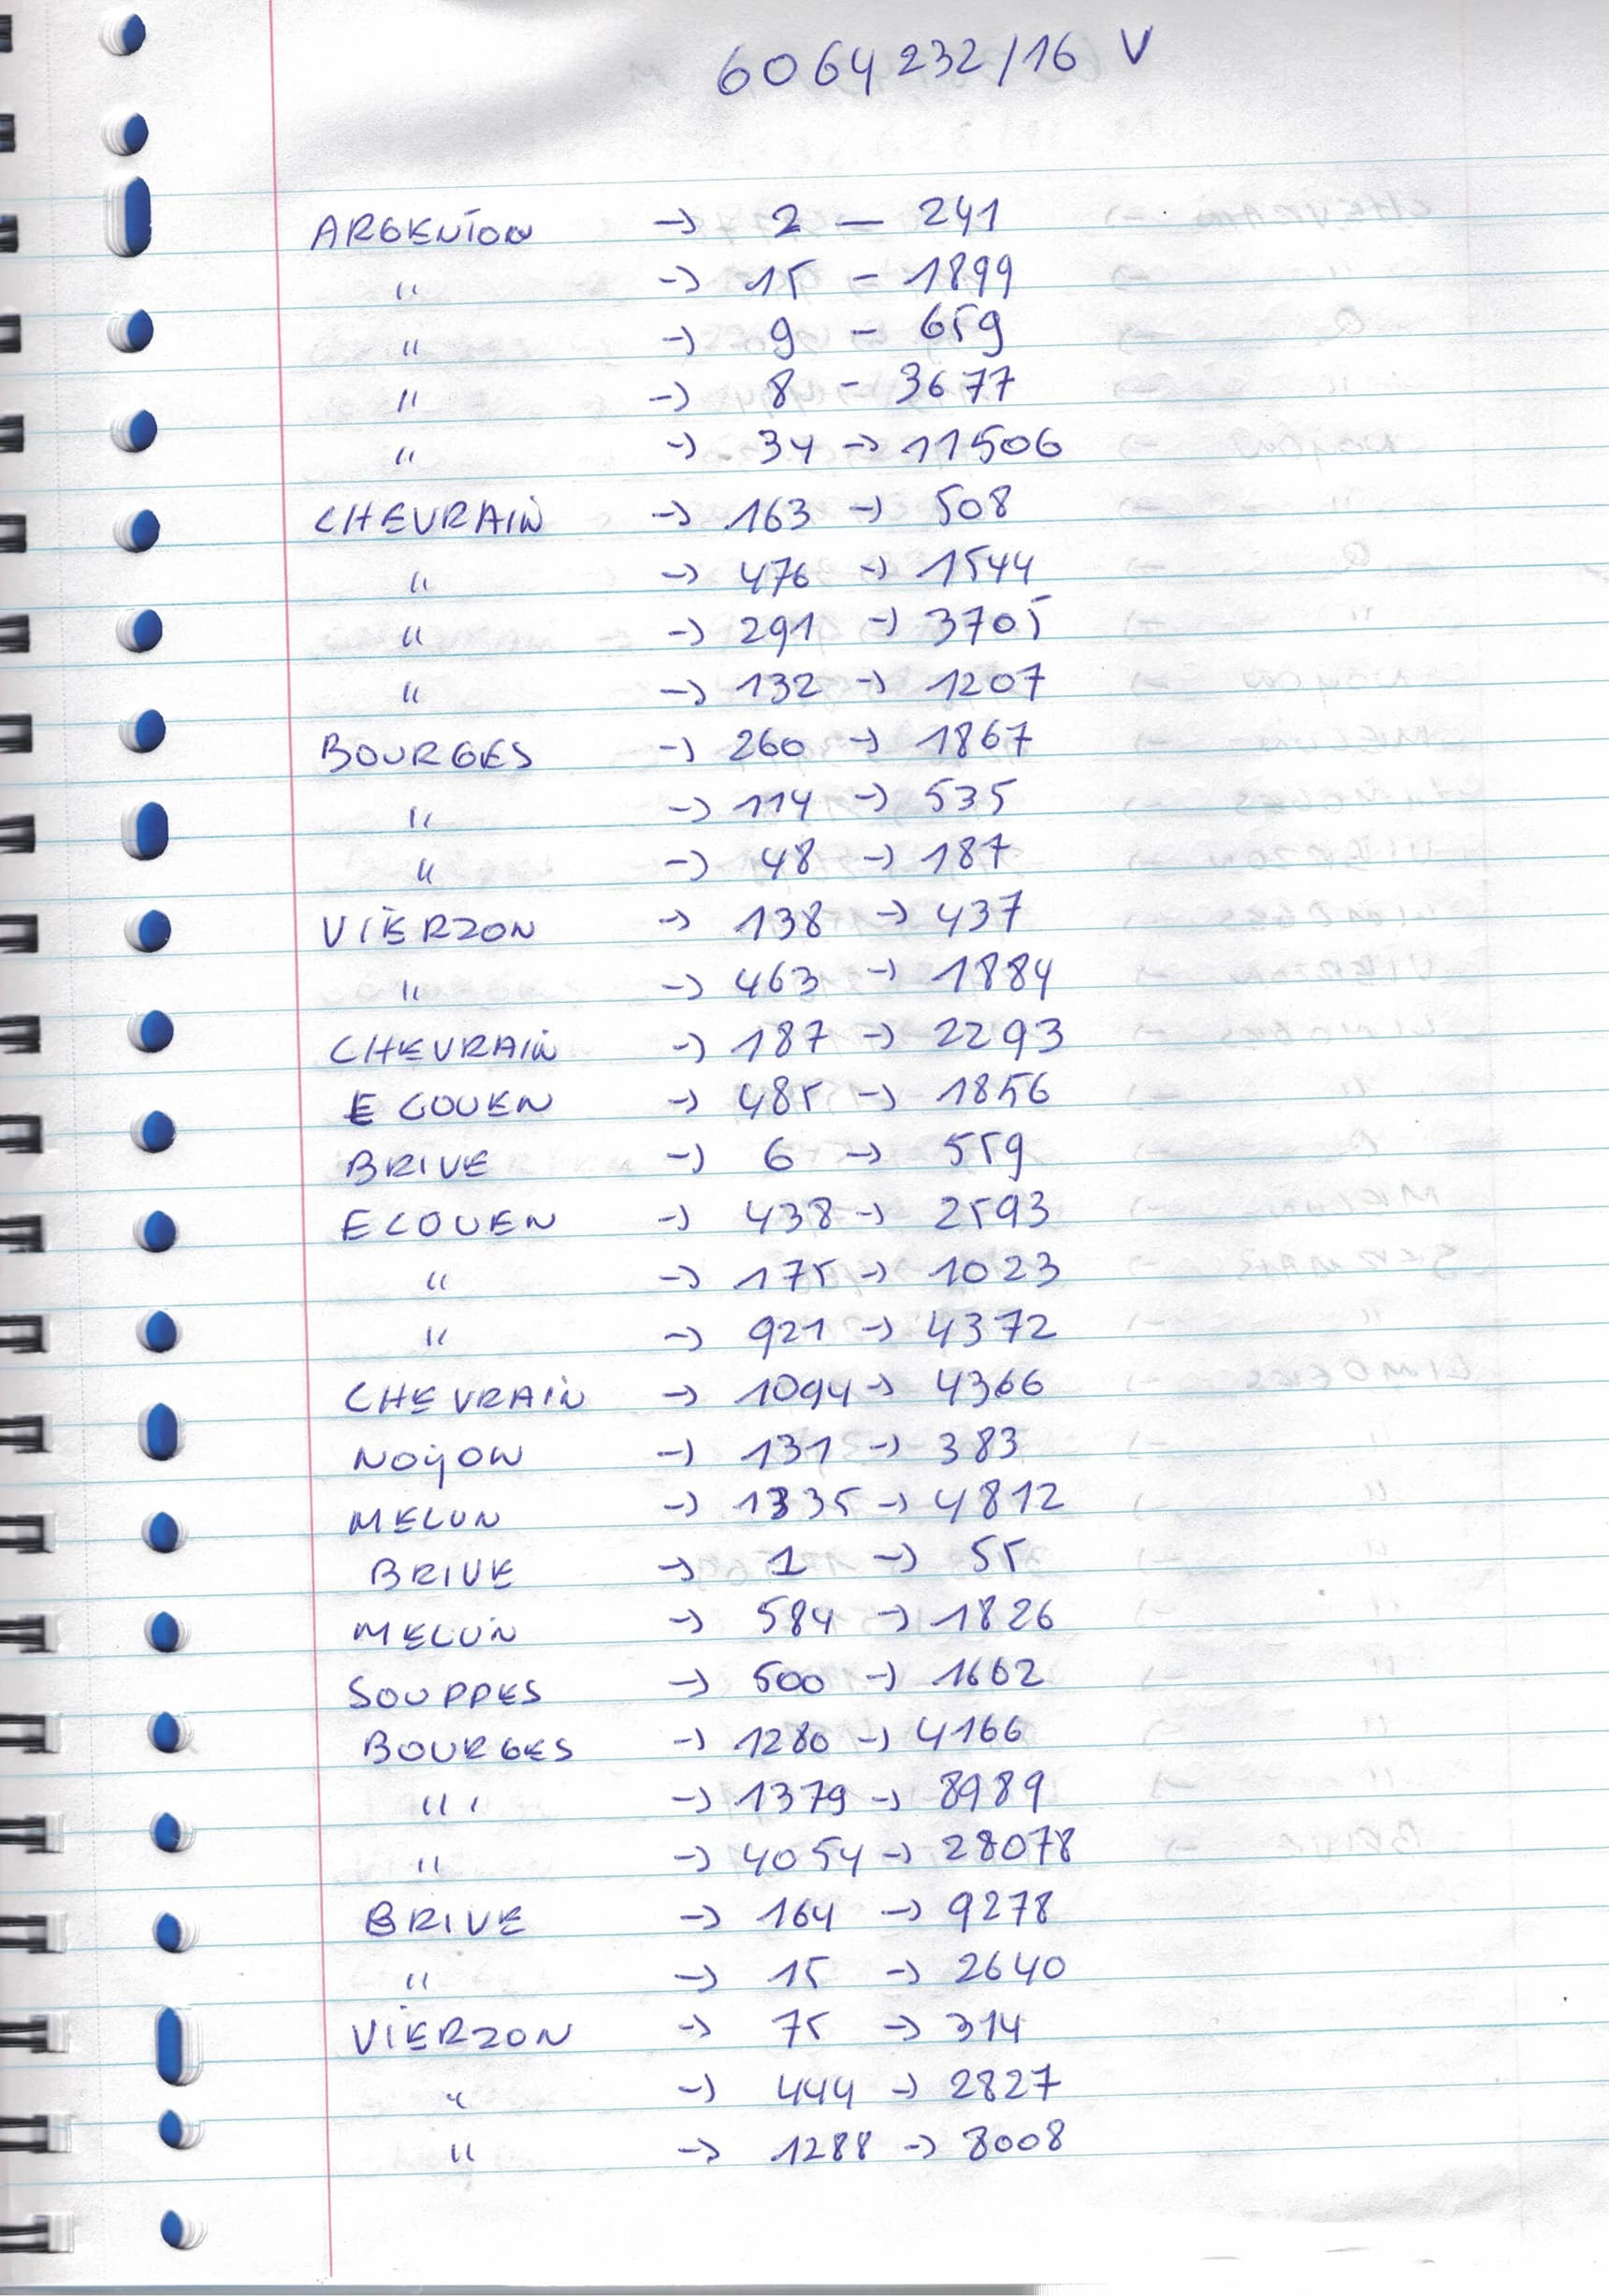 6064232/16 V
ARGENTON → 2 — 241
" → 15 - 1899
" → 9 - 659
" → 8 - 3677
" → 34 → 11506
CHEVRAIN → 163 → 508
" → 476 → 1544
" → 291 → 3705
" → 132 → 1207
BOURGES → 260 → 1867
" → 114 → 535
" → 48 → 187
VIERZON → 138 → 437
" → 463 → 1884
CHEVRAIN → 187 → 2293
ECOUEN → 485 → 1856
BRIVE → 6 → 559
ECOUEN → 438 → 2593
" → 175 → 1023
" → 921 → 4372
CHEVRAIN → 1094 → 4366
NOYON → 131 → 383
MELUN → 1335 → 4812
BRIVE → 1 → 55
MELUN → 584 → 1826
SOUPPES → 500 → 1662
BOURGES → 1280 → 4166
" → 1379 → 8989
" → 4054 → 28078
BRIVE → 164 → 9278
" → 15 → 2640
VIERZON → 75 → 314
" → 444 → 2827
" → 1288 → 8008